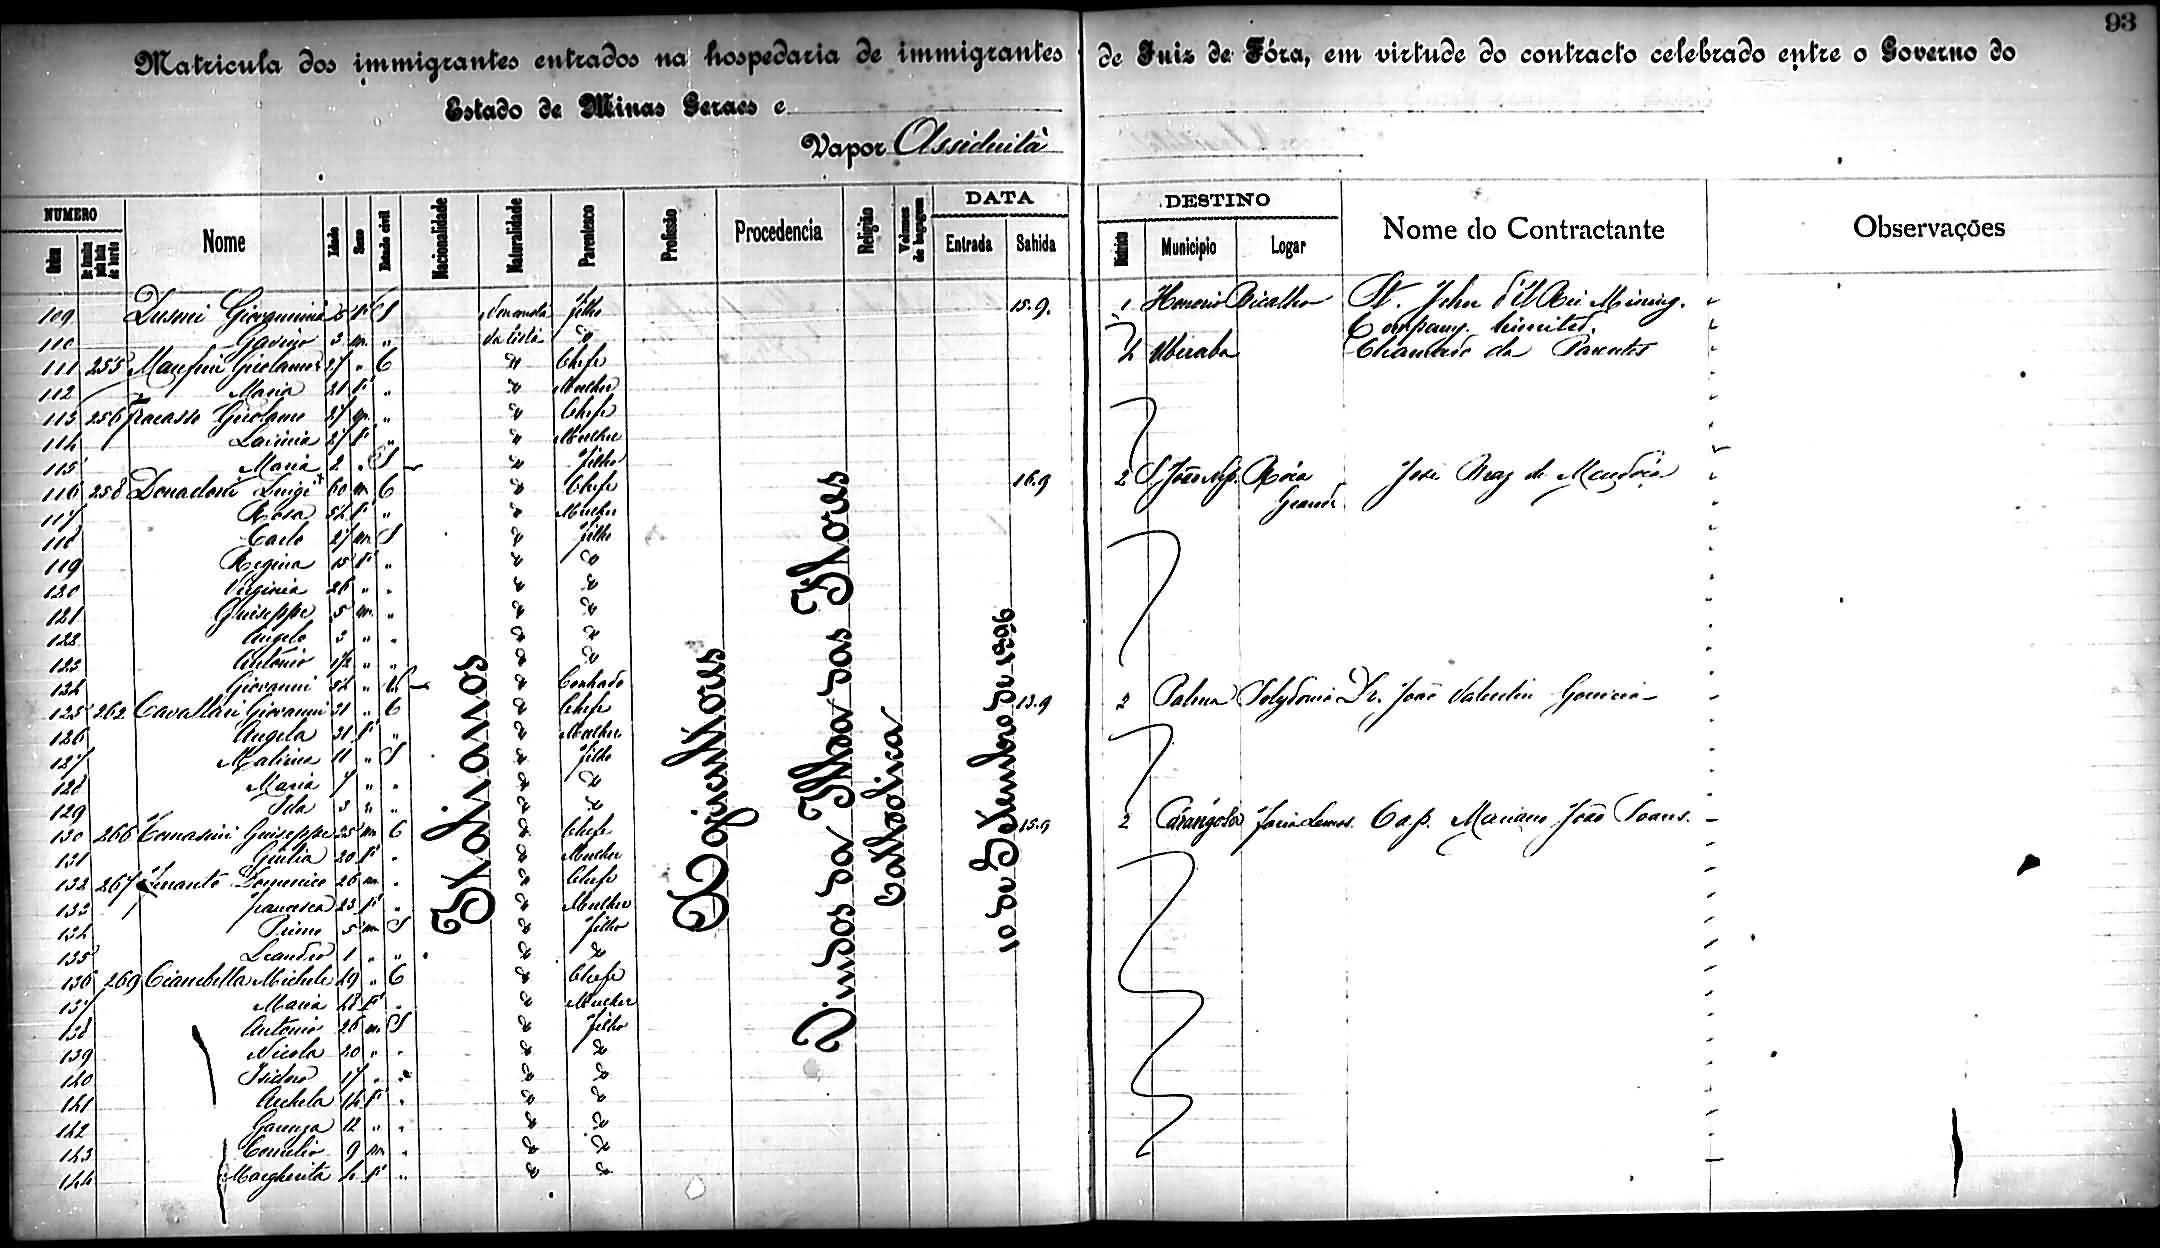 93
Matricula dos immigrantes entrados na hospedaria de immigrantes de Juiz de Fóra, em virtude do contracto celebrado entre o Governo do
Estado de Minas Geraes e
Vapor Assiduità
NUMERO Nome Idade Sexo Estado civil Nacionalidade Naturalidade Parentesco Profissão Procedencia Religião Volumes de bagagem DATA DESTINO Nome do Contractante Observações
Ordem Entrada Sahida Districto Municipio Logar
Italianos
Agricultores
Vindos da Ilha das Flores
Catholica
10 de Setembro de 1896
109 Giovannina S filho 15.9. 1 Honorio Bicalho St. John d'El Rei Mining.
110 Gavino 3 m. " " Company. Limited.
111 255 Girolamo 27 " C " Chefe 4 Uberaba Chamado de Parentes
112 Maria 21 f " " Mulher
113 256 Fracasso Girolamo 27 m. " " Chefe
114 Lavinia 27 f " " Mulher
115 Maria 2 " S " filho
116 258 Donadoni Luigi 60 m C " Chefe 16.9 2 S. João Nep. Roça José Braz de Mendonça
117 Rosa 52 f " " Mulher Grande
118 Carlo 27 m S " filho
119 Regina 15 f " " "
120 Virginia 26 " " " "
121 Guiseppe 5 m. " " "
122 Angelo 3 " " " "
123 Antonio 1/2 " " " "
124 Giovanni 52 " " Cunhado
125 262 Cavallari Giovanni 31 " C " Chefe 13.9 2 Palma Dr. João Valentin
126 Angela 31 f " " Mulher
127 11 " S " filho
128 Maria 7 " " " "
129 Ida 3 " " " "
130 266 Tomasini Guiseppe 25 m C " Chefe 15.9 2 Carangola Faria Lemos. Cap. Mariano João Soares.
131 Giulia 20 f " " Mulher
132 267 Domenico 26 m. " " Chefe
133 Francesca 23 f " " Mulher
134 Primo 5 m S " filho
135 Leandro 1 " " " "
136 269 Ciambella Michele 49 " C " Chefe
137 Maria 48 f " " Mulher
138 Antonio 26 m S " filho
139 Nicola 20 " " " "
140 Isidoro 17 " " " "
141 14 f " " "
142 12 " " " "
143 Cornelio 9 m " " "
144 Margherita 4 f " " "